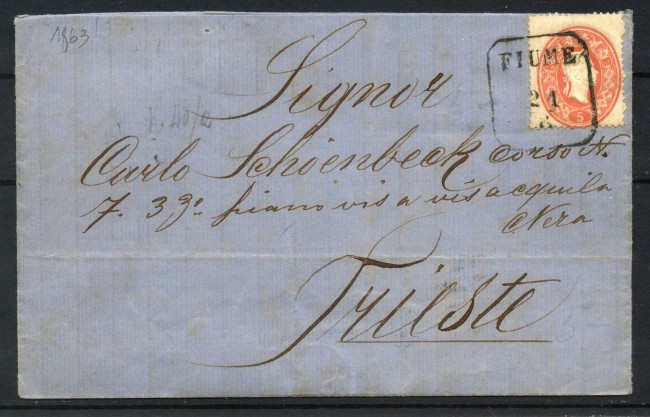 1863
FIUME
21
5
Signor
Carlo Schoenbeck corso N.
7. 33o piano vis a vis acquila
Nera
Trieste